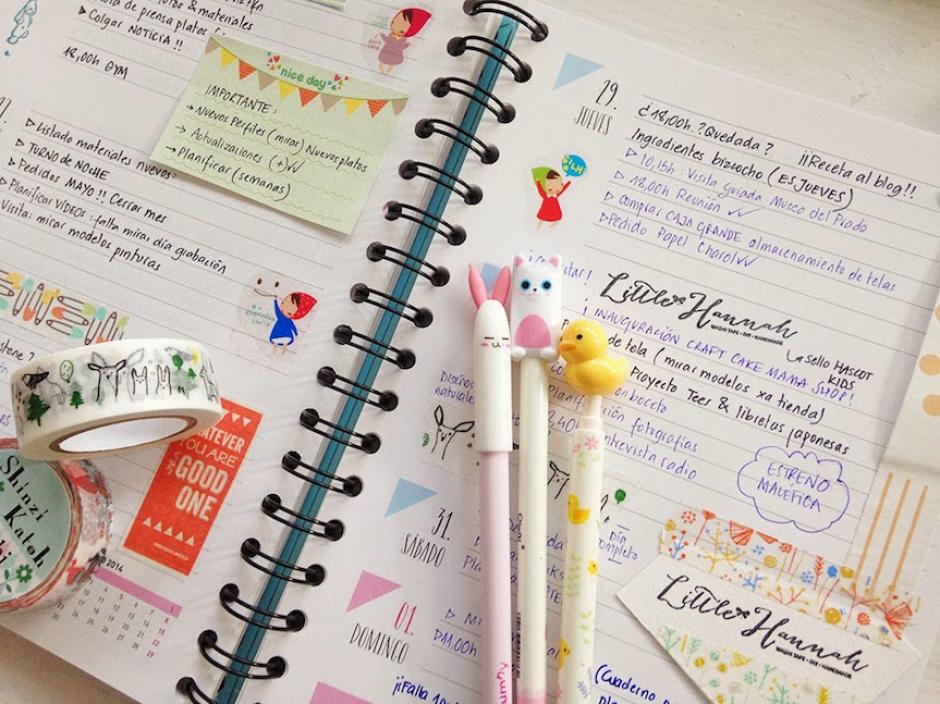 & materiales
de prensa platos
▷ Colgar NOTICIA !!
18,00h GYM
nice day
IMPORTANTE:
→ Nuevos Perfiles (miras) Nuevos platos
→ Actualizaciones (+) ✓✓
→ Planificar (semanas)
▷ Listado materiales nuevos
▷ TURNO DE NOCHE
▷ Pedidos MAYO!! Cerrar mes
Planificar VIDEOS: falta mirar día grabación
Visita: mirar modelos pinturas
WHATEVER
YOU ARE
BE A
GOOD
ONE
Shinzi
Katoh
2014
29.
JUEVES
¿18,00h. ? Quedada ? ¡¡Receta al blog!!
Ingredientes bizcocho (ES JUEVES)
▷ 10,15h: Visita guiada Museo del Prado
▷ 18,00h Reunión ✓✓
▷ Comprar CAJA GRANDE almacenamiento de telas
▷ Pedido Papel Charol ✓✓
Little Hannah
WASHI TAPE + DIY + HANDMADE
sello MASCOT
KIDS
¡ INAUGURACIÓN CRAFT CAKE MAMA SHOP!
de tela (mirar modelos xa tienda)
Proyecto Tees & libretas japonesas
Diseños
naturales
boceto
fotografías
entrevista radio
ESTRENO
MALÉFICA
Día
completo
31.
SÁBADO
01.
DOMINGO
▷ 11.00h
¡¡Falla
(Cuaderno
Little Hannah
WASHI TAPE + DIY + HANDMADE